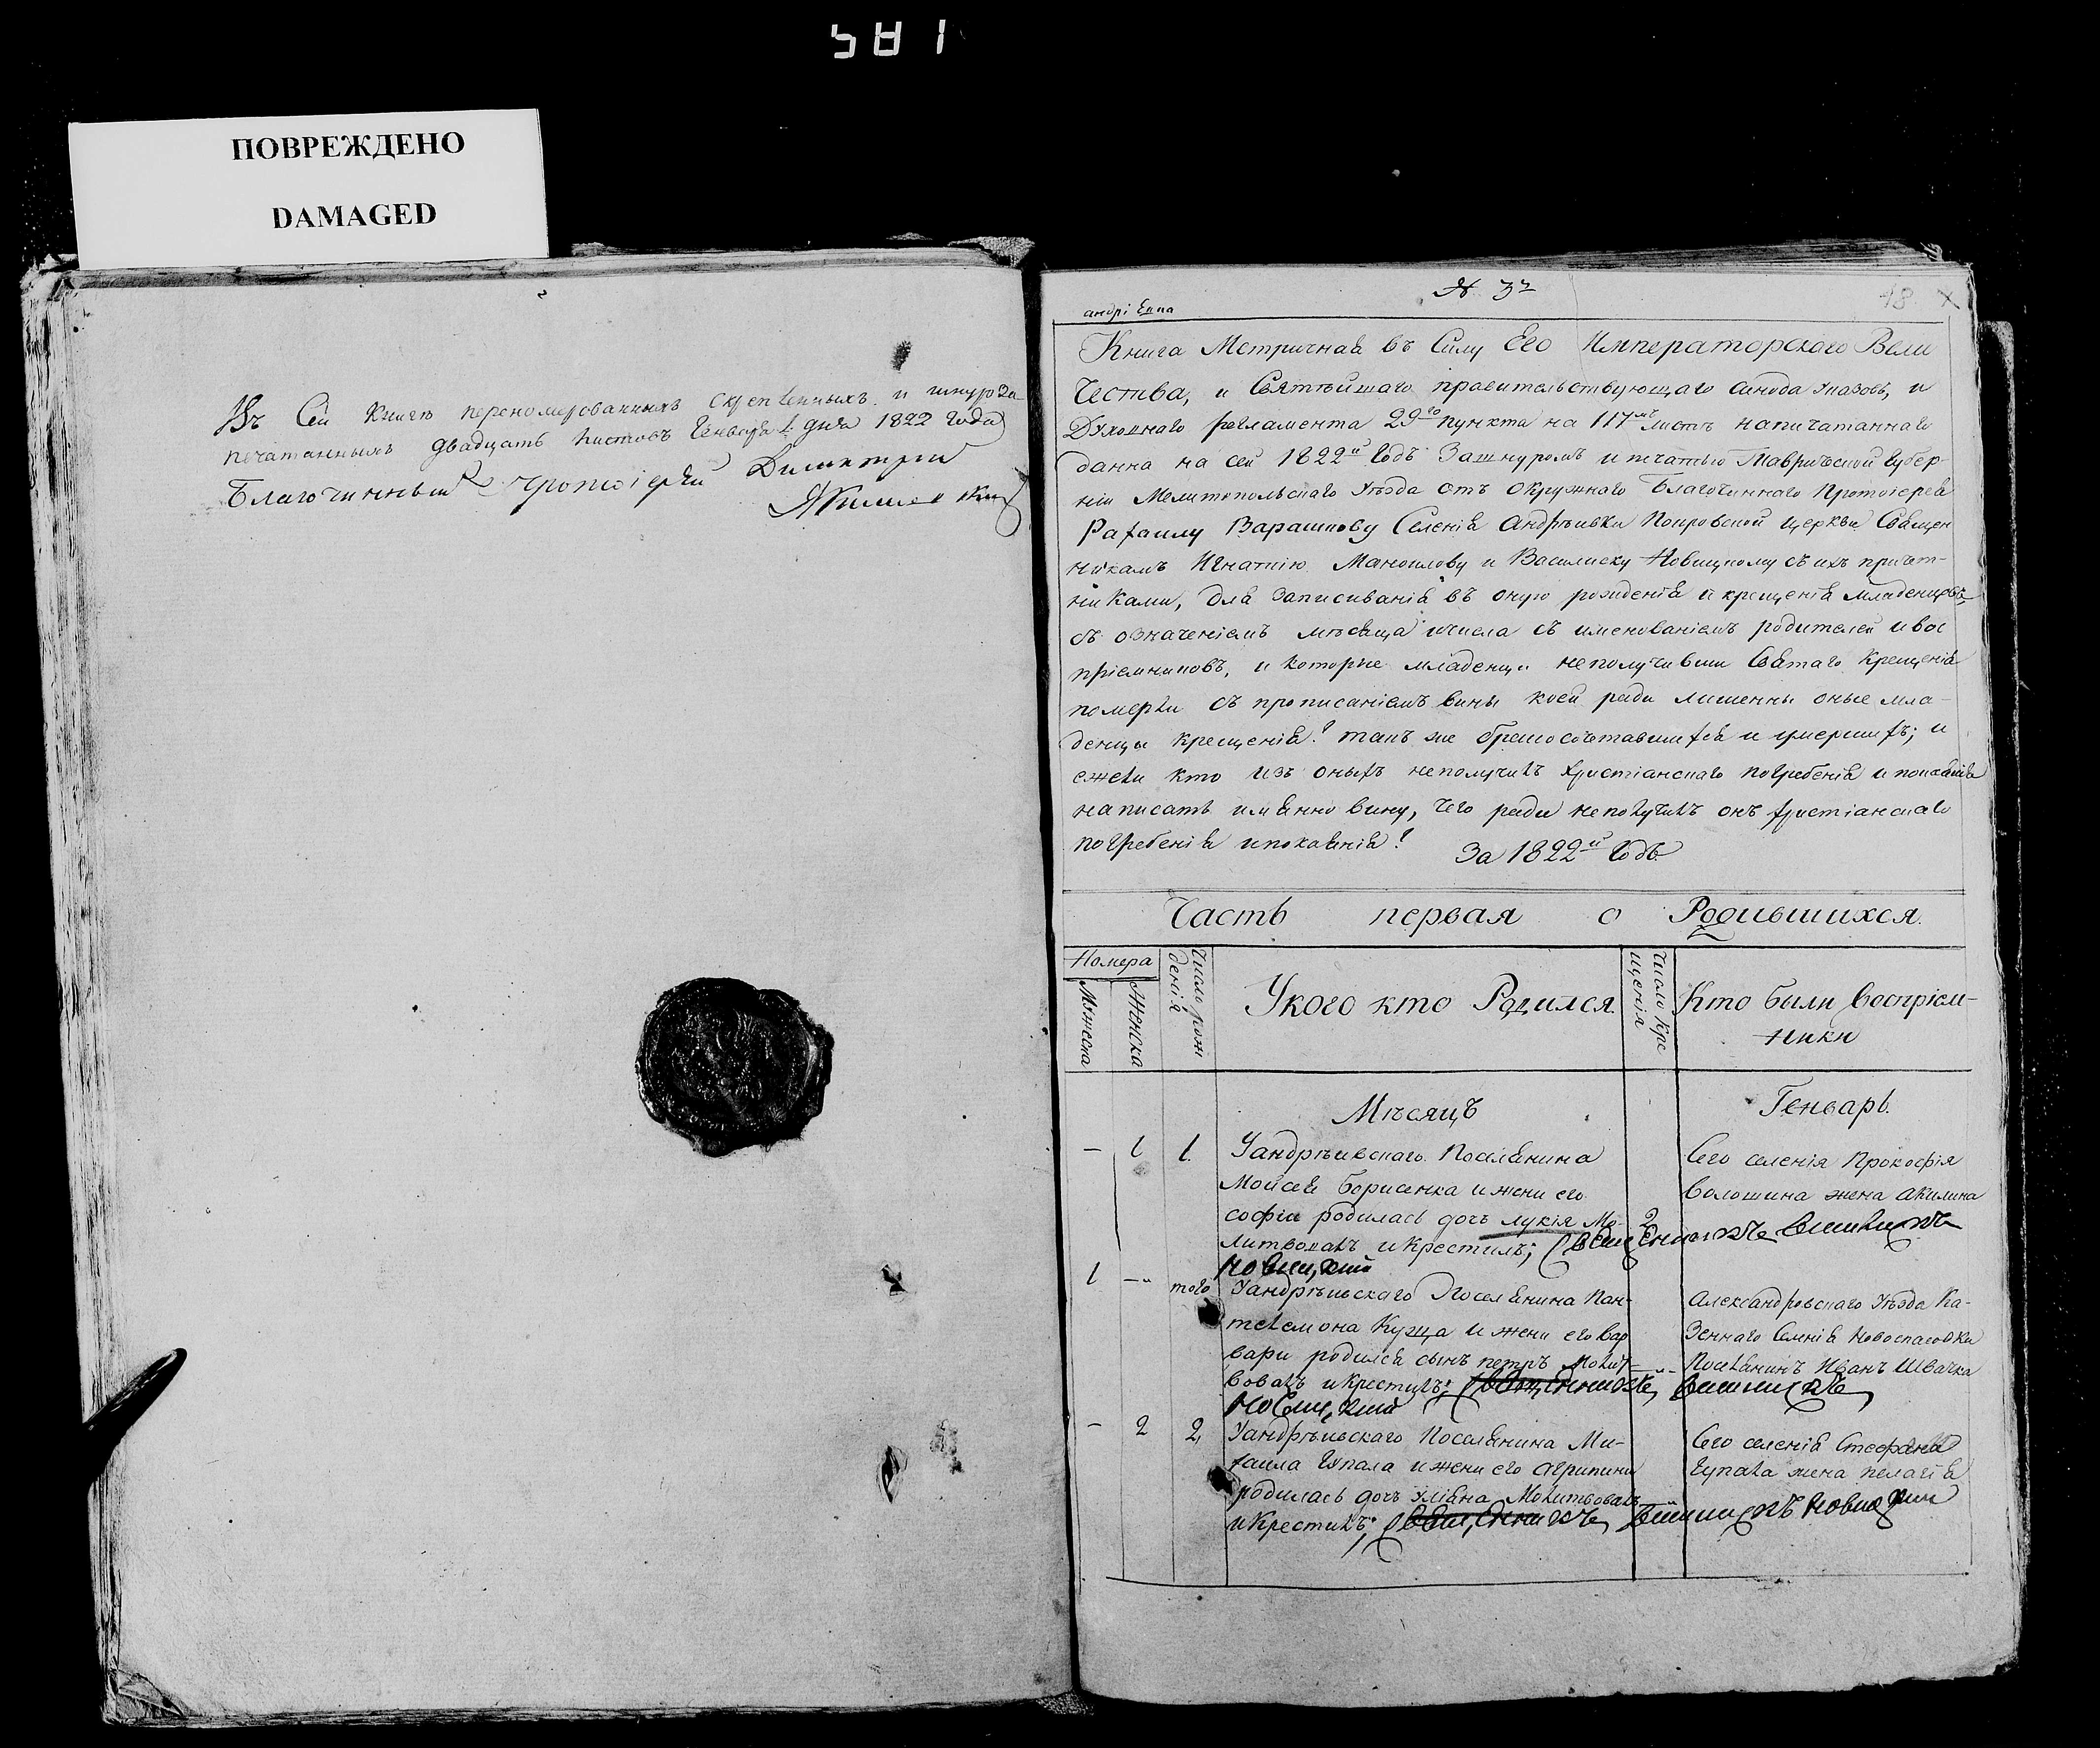 581
ПОВРЕЖДЕНО
DAMAGED
Въ Сей Книгѣ перономерованныхъ скрепленныхъ и шнуроза
печатанныхъ двадцать листовъ Генваря 1 дня 1822 года
Благочинный протоіерей Димитрій
№ 3й
андріевка
13
Книга Метричная въ Силу Его Императорскаго Вели
чества, и Святѣйшаго правительствующаго синода указовъ, и
Духовнаго регламента 29го пункта на 117мъ листѣ напичатаннаго
данна на сей 1822й Годъ Зашнуромъ и пчатью Таврической Губер-
ніи Мелитопольскаго Уѣзда отъ Окружнаго Благочиннаго Протоіерея
Рафаилу Варашкову Селенія Андрѣивки Покровской церкви Священ
никамъ Игнатію Маноилову и Василиску Новицкому съ ихъ причет-
никами, для Записиванія въ оную рожденія и крещенія младенцовъ,
съ означеніемъ мѣсяца ичисла съ именованіемъ родителей и вос
пріемниковъ, и которие младенци неполучивши Святаго Крещенія
померли съ прописаніемъ вины коей ради лишенны оные мла-
денцы крещенія? такъ же бракосочетавшихся и умершихъ; и
ежели кто изъ оныхъ неполучилъ христіанскаго погребенія и покаянія
написать имянно вину, чего ради неполучилъ онъ христіанскаго
погребенія ипокаянія?
За 1822й Годъ
Часть первая о Родившихся.
Номера
Мужеска
Женска
Число рож
денія
Укого кто Родился
Число кре
щенія
Кто были воспріем-
ники
Мѣсяцъ
Генварь.
— 1 1.
Уандрѣивскаго Поселянина
Мойсея Борисенка и жени его
софіи родилась дочь лукія Мо-
литвовалъ икрестилъ; Священникъ
Новицкий
2
Сего селенія Прокофія
Волошина жена Акилина
1 — того
Уандрѣивскаго Поселянина Пан-
телемона Куща и жени его вар
вари родился сынъ петръ Молит-
вовалъ икрестилъ; Священникъ
Новицкий
Александровскаго Уѣзда Ка-
зеннаго Селенія Новоспасовки
Поселянинъ Иванъ Швачка
— 2 2,
Уандрѣивскаго Поселянина Ми-
хаила Чупала и жени его Агрипини
родилась дочь Уліяна Молитвовалъ
икрестилъ; Священникъ Новицкий
Сего селенія Стефана
Чупала жена пелагія